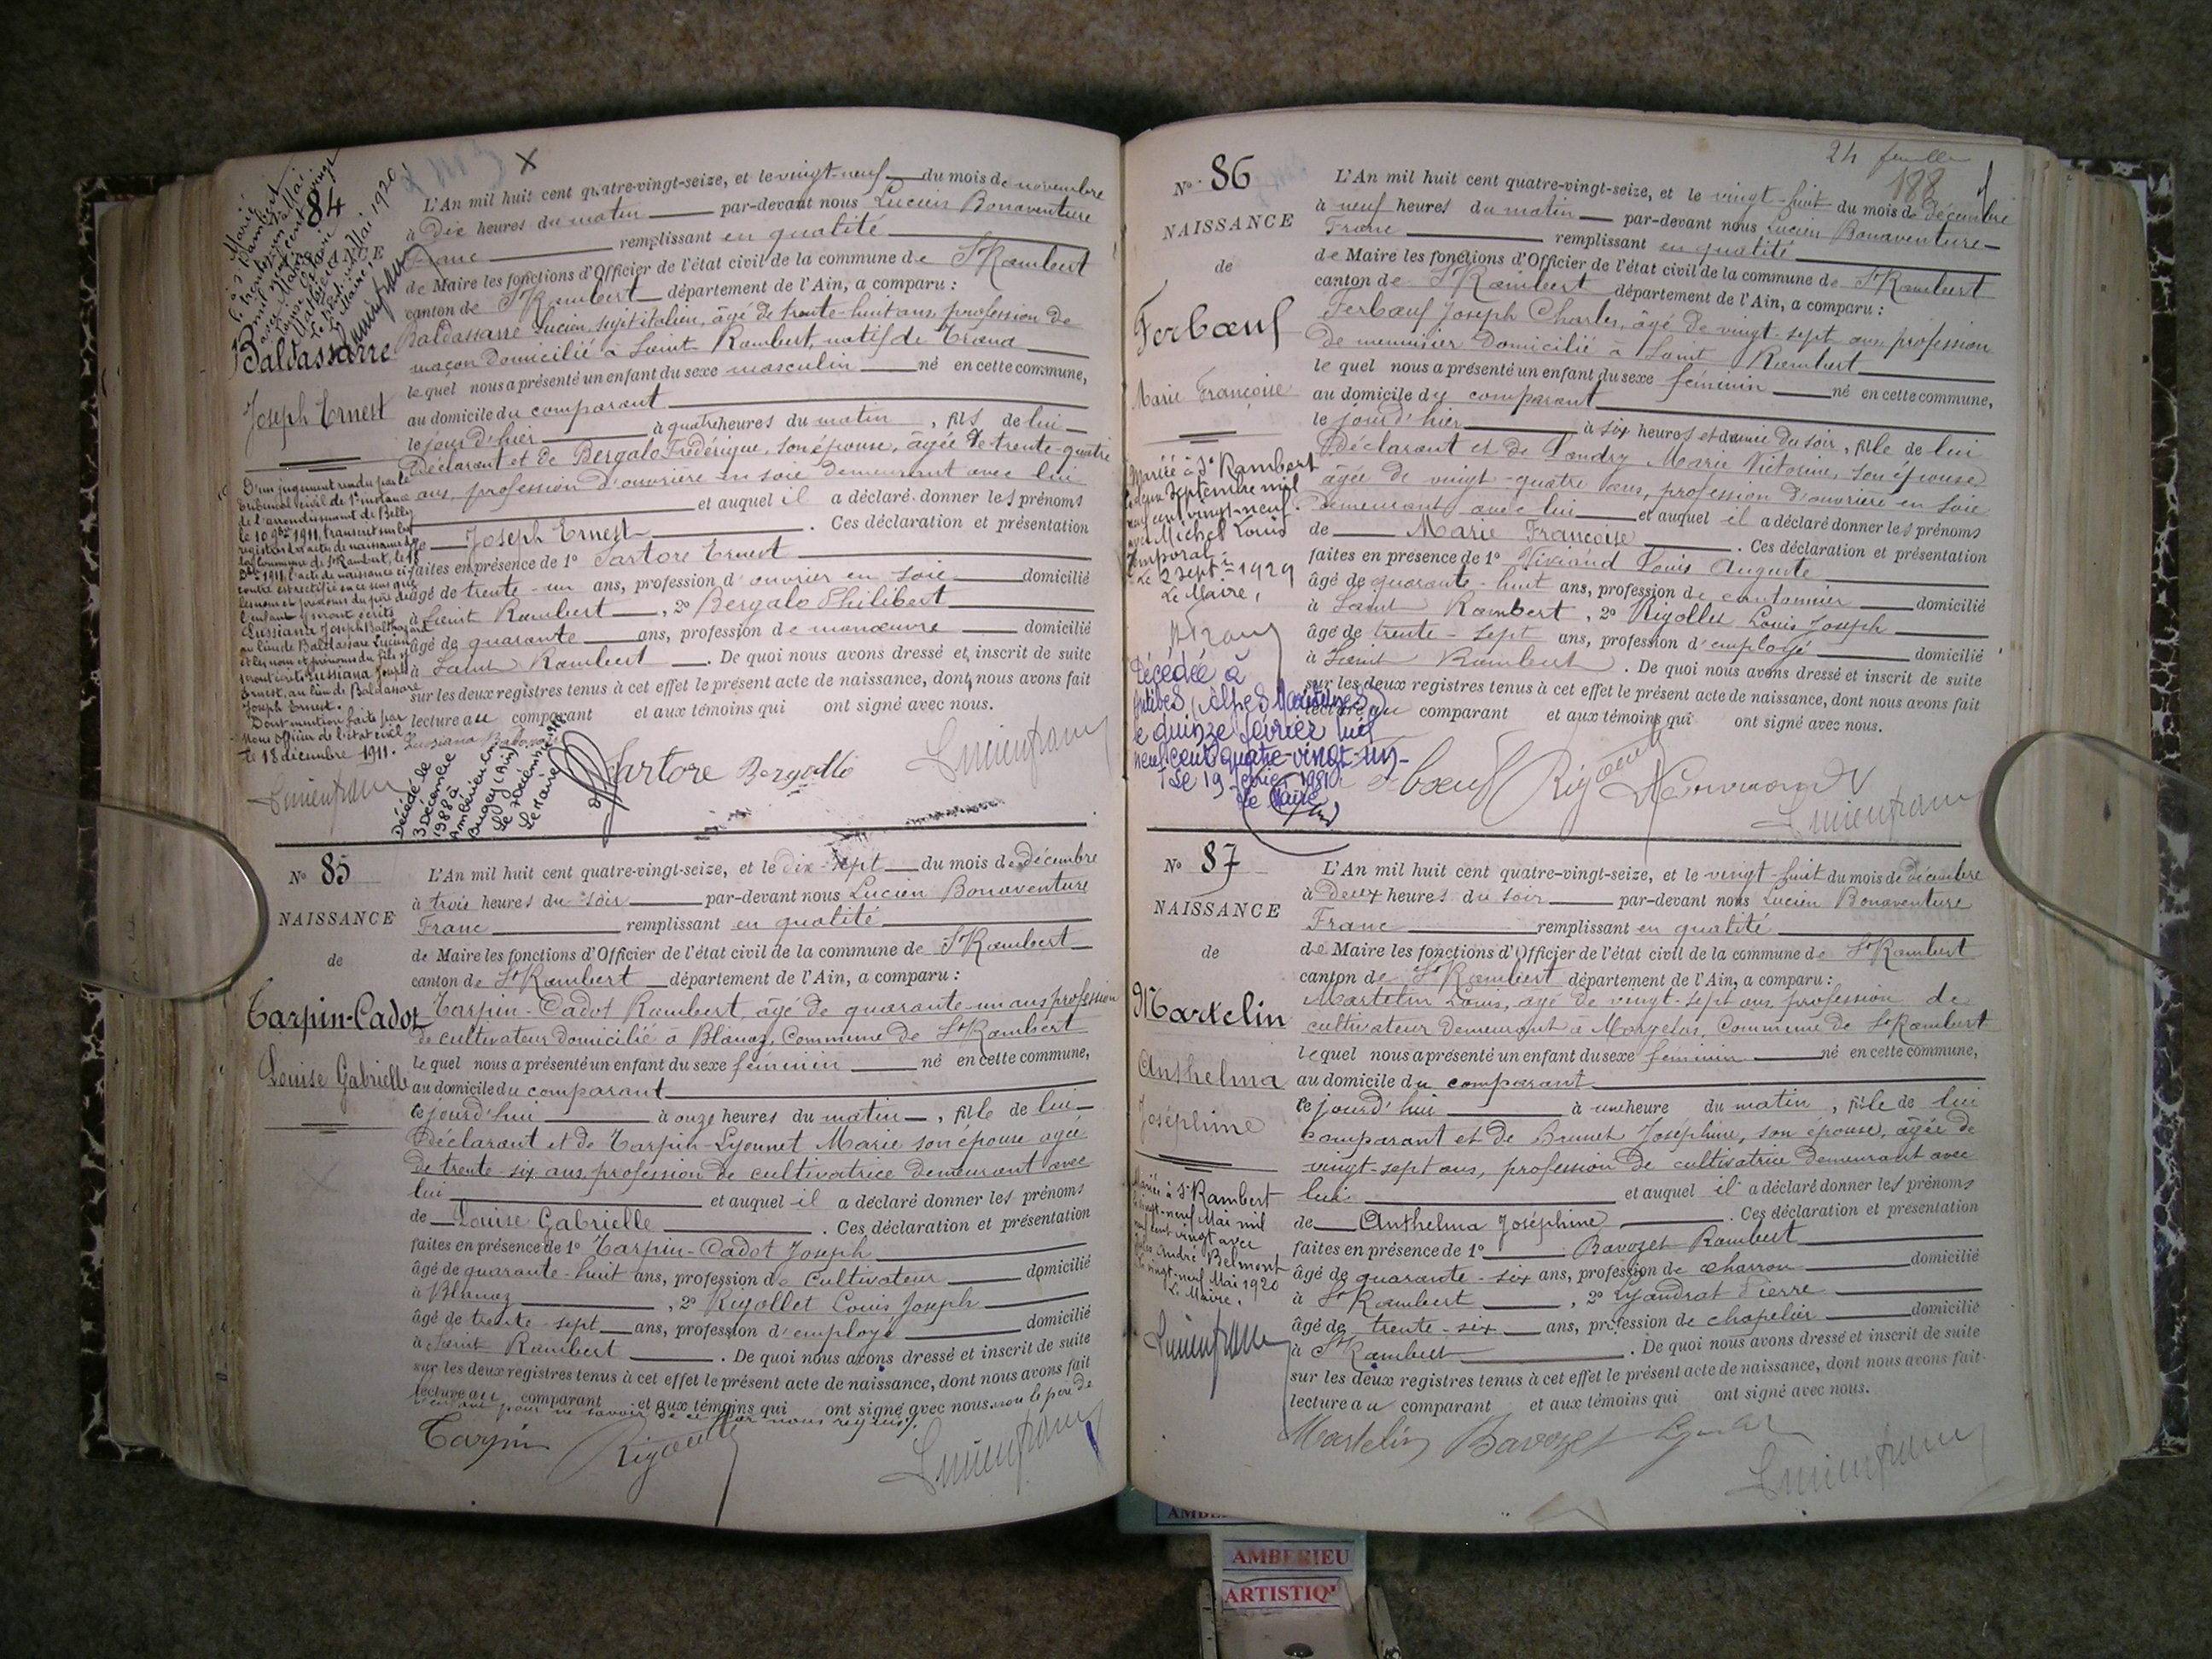 84
Baldassarre
Joseph Ernest
L'An mil huit cent quatre-vingt-seize, et le vingt-neuf du mois de novembre
à Dix heures du matin par-devant nous Lucien Bonaventure
Franc remplissant en qualité
de Maire les fonctions d'Officier de l'état civil de la commune de St Rambert
canton de St Rambert département de l'Ain, a comparu :
Baldassarre Lucien, sujet italien, âgé de trente-huit ans, profession de
maçon domicilié à Saint Rambert, natif de
le quel nous a présenté un enfant du sexe masculin né en cette commune,
au domicile du comparant
le jour d'hier à quatre heures du matin, fils de lui
Déclarant et de Bergalo Frédérique, son épouse, âgée de trente-quatre
ans, profession d'ouvrière en soie demeurant avec lui
et auquel il a déclaré donner les prénoms
de Joseph Ernest. Ces déclaration et présentation
faites en présence de 1° Sartore Ernest
âgé de trente-un ans, profession d'ouvrier en soie domicilié
à Saint Rambert, 2° Bergalo Philibert
âgé de quarante ans, profession de manœuvre domicilié
à Saint Rambert. De quoi nous avons dressé et inscrit de suite
sur les deux registres tenus à cet effet le présent acte de naissance, dont nous avons fait
lecture au comparant et aux témoins qui ont signé avec nous.
D'un jugement rendu par le
tribunal civil de 1re instance
de l'arrondissement de Belley
le 10 9bre 1911, transcrit sur les
registres des actes de naissance de
la commune de St Rambert, le 18
Xbre 1911, l'acte de naissance ci
contre est rectifié en ce sens que
les nom et prénoms du père de
l'enfant y seront écrits
Lussiana Joseph Balthazard
au lieu de Baldassare Lucien
et les nom et prénoms du fils y
seront écrits Lussiana Joseph
Ernest, au lieu de Baldassare
Joseph Ernest.
Dont mention faite par
Nous officier de l'état civil
le 18 décembre 1911.
Décédé le
3 Décembre
1988 à
Ambérieu en
Bugey (Ain)
Le Maire
Sartore Bergallo Lucien franc
N° 85
NAISSANCE
de
Tarpin-Cadot
Louise Gabrielle
L'An mil huit cent quatre-vingt-seize, et le dix-sept du mois de décembre
à trois heures du soir par-devant nous Lucien Bonaventure
Franc remplissant en qualité
de Maire les fonctions d'Officier de l'état civil de la commune de St Rambert
canton de St Rambert département de l'Ain, a comparu :
Tarpin-Cadot Rambert, âgé de quarante-un ans profession
de cultivateur domicilié à Blanaz, Commune de St Rambert
le quel nous a présenté un enfant du sexe féminin né en cette commune,
au domicile du comparant
le jourd'hui à onze heures du matin, fille de lui
Déclarant et de Tarpin-Lyonnet Marie son épouse agée
de trente-six ans profession de cultivatrice demeurant avec
lui et auquel il a déclaré donner les prénoms
de Louise Gabrielle. Ces déclaration et présentation
faites en présence de 1° Tarpin-Cadot Joseph
âgé de quarante-huit ans, profession de cultivateur domicilié
à Blanaz, 2° Rigollet Louis Joseph
âgé de trente-sept ans, profession d'employé domicilié
à Saint Rambert. De quoi nous avons dressé et inscrit de suite
sur les deux registres tenus à cet effet le présent acte de naissance, dont nous avons fait
lecture au comparant et aux témoins qui ont signé avec nous non le père de
l'enfant pour ne savoir de ce par nous requis.
Tarpin Rigollet Lucien franc
24 feuilles
188
N° 86
NAISSANCE
de
Ferbœuf
Marie Françoise
L'An mil huit cent quatre-vingt-seize, et le vingt-huit du mois de décembre
à neuf heures du matin par-devant nous Lucien Bonaventure
Franc remplissant en qualité
de Maire les fonctions d'Officier de l'état civil de la commune de St Rambert
canton de St Rambert département de l'Ain, a comparu :
Ferbœuf Joseph Charles, âgé de vingt-sept ans profession
de menuisier domicilié à Saint Rambert
le quel nous a présenté un enfant du sexe féminin né en cette commune,
au domicile du comparant
le jour d'hier à six heures et demie du soir, fille de lui
Déclarant et de Tondry Marie Victorine, son épouse
âgée de vingt-quatre ans, profession d'ouvrière en soie
demeurant avec lui et auquel il a déclaré donner les prénoms
de Marie Françoise. Ces déclaration et présentation
faites en présence de 1° Viviand Louis Auguste
âgé de quarante-huit ans, profession de cantonnier domicilié
à Saint Rambert, 2° Rigollet Louis Joseph
âgé de trente-sept ans, profession d'employé domicilié
à Saint Rambert. De quoi nous avons dressé et inscrit de suite
sur les deux registres tenus à cet effet le présent acte de naissance, dont nous avons fait
lecture au comparant et aux témoins qui ont signé avec nous.
Mariée à St Rambert
le deux Septembre mil
neuf cent vingt-neuf
avec Michel Louis
Temporal
Le 2 Sept. 1929
Le Maire,
Décédée à
Antibes (Alpes Maritimes)
le quinze février mil
neuf cent quatre-vingt-un
Le 19 février 1981
Le Maire
Lucien franc
N° 87
NAISSANCE
de
Martelin
Anthelma
Joséphine
L'An mil huit cent quatre-vingt-seize, et le vingt-huit du mois de décembre
à Deux heures du soir par-devant nous Lucien Bonaventure
Franc remplissant en qualité
de Maire les fonctions d'Officier de l'état civil de la commune de St Rambert
canton de St Rambert département de l'Ain, a comparu :
Martelin Louis, âgé de vingt-sept ans, profession de
cultivateur demeurant à Morgelas, Commune de St Rambert
lequel nous a présenté un enfant du sexe féminin né en cette commune,
au domicile du comparant
le jourd'hui à une heure du matin, fille de lui
comparant et de Brunet Joséphine, son épouse, agée de
vingt-sept ans, profession de cultivatrice demeurant avec
lui et auquel il a déclaré donner les prénoms
de Anthelma Joséphine. Ces déclaration et présentation
faites en présence de 1° Bavozet Rambert
âgé de quarante-six ans, profession de charron domicilié
à St Rambert, 2° Lyandrat Pierre
âgé de trente-six ans, profession de chapelier domicilié
à St Rambert. De quoi nous avons dressé et inscrit de suite
sur les deux registres tenus à cet effet le présent acte de naissance, dont nous avons fait
lecture au comparant et aux témoins qui ont signé avec nous.
Mariée à St Rambert
le vingt-neuf Mai mil
neuf cent vingt avec
André Belmont
Le vingt-neuf Mai 1920
Le Maire,
Lucien franc
Martelin Bavozet Lucien franc
AMBERIEU
ARTISTIQ